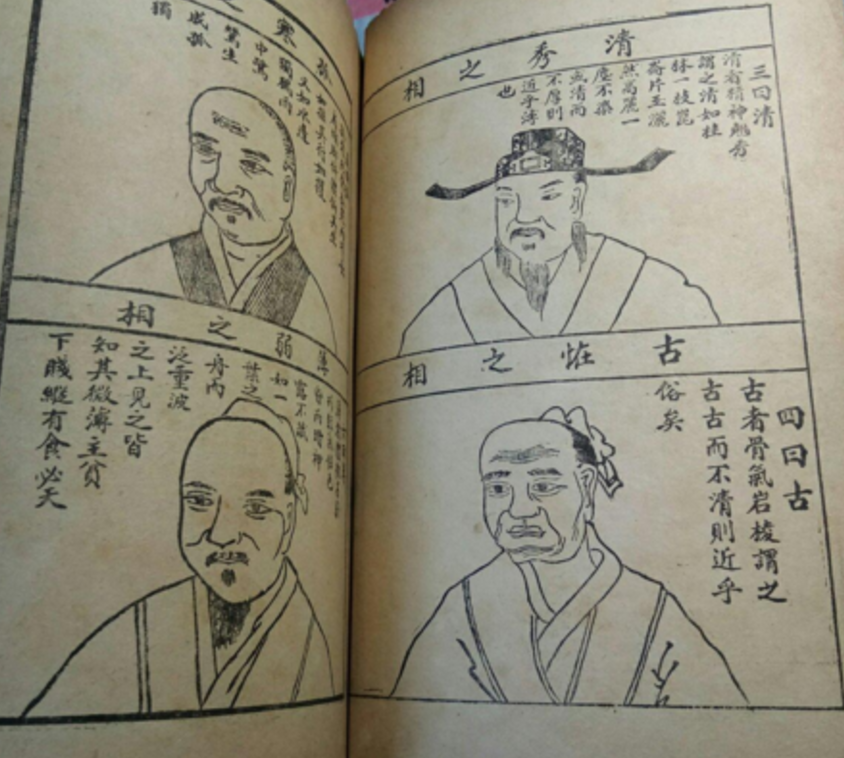 清秀之相
三曰清
清者精神翹秀
謂之清如桂
林一枝崑
崙片玉灑
然高麗一
塵不染
或清而
不厚則
近乎薄
也
古恠之相
四曰古
古者骨氣岩稜謂之
古古而不清則近乎
俗矣
孤寒之
又如水邊
獨鷺雨
中鷺
生
成孤
獨
薄弱之相
昏而暗神
露不藏
如一
葉之
舟而
泛重波
之上見之皆
知其微薄主貧
下賤縱有食必夭